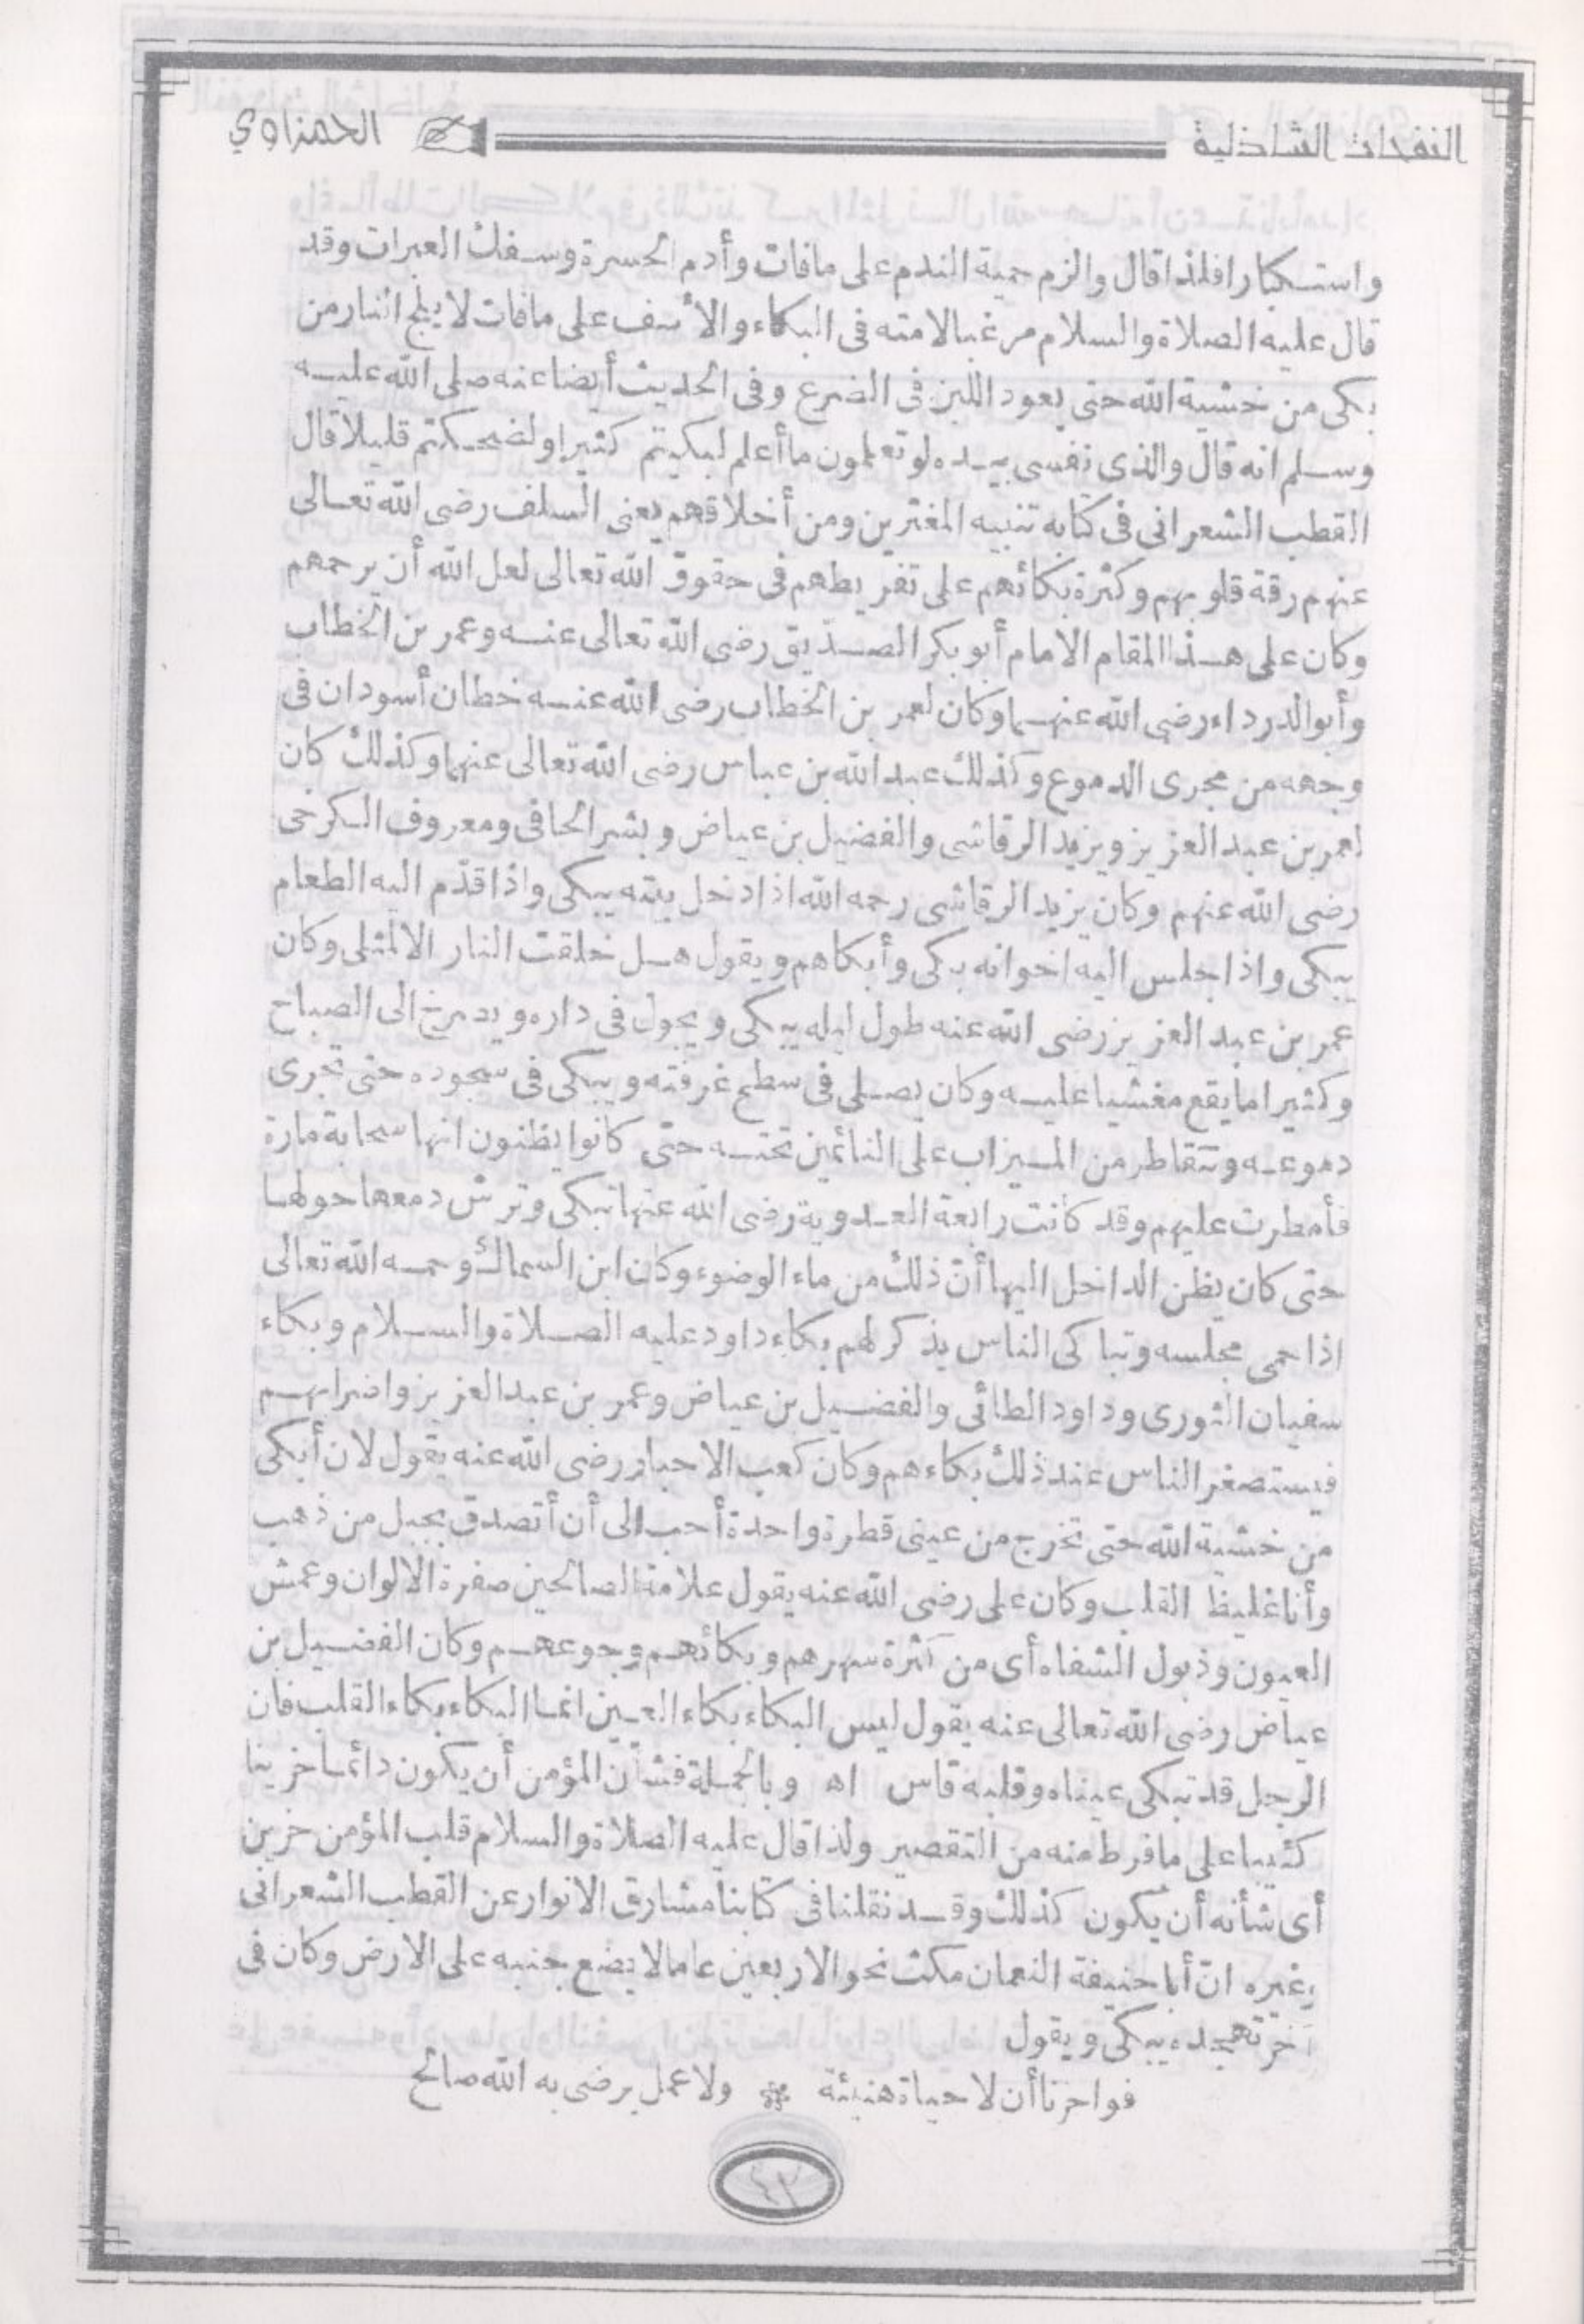 النفحات الشاذلية الحمزاوي
واستكبارا فلذا قال والزم حمية الندم على مافات وأدم الحسرة وسفك العبرات وقد
قال عليه الصلاة والسلام مرغبا لامته فى البكاء والأسف على مافات لا يلج النار من
بكى من خشية الله حتى يعود اللبن فى الضرع وفى الحديث أيضا عنه صلى الله عليه
وسلم انه قال والذى نفسى بيده لو تعلمون ما أعلم لبكيتم كثيرا ولضحكتم قليلا قال
القطب الشعرانى فى كتابه تنبيه المغترين ومن أخلاقهم يعنى السلف رضى الله تعالى
عنهم رقة قلوبهم وكثرة بكائهم على تفريطهم فى حقوق الله تعالى لعل الله أن يرحمهم
وكان على هذا المقام الامام أبو بكر الصديق رضى الله تعالى عنه وعمر بن الخطاب
وأبو الدرداء رضى الله عنهما وكان لعمر بن الخطاب رضى الله عنه خطان أسودان فى
وجهه من مجرى الدموع وكذلك عبد الله بن عباس رضى الله تعالى عنهما وكذلك كان
لعمر بن عبد العزيز ويزيد الرقاشى والفضيل بن عياض وبشر الحافى ومعروف الكرخى
رضى الله عنهم وكان يزيد الرقاشى رحمه الله اذا دخل بيته يبكى واذا قدّم اليه الطعام
يبكى واذا جلس اليه اخوانه بكى وأبكاهم ويقول هل خلقت النار الا لمثلى وكان
عمر بن عبد العزيز رضى الله عنه طول ليله يبكى ويجول فى داره ويصرخ الى الصباح
وكثيرا ما يقع مغشيا عليه وكان يصلى فى سطح غرفته ويبكى فى سجوده حتى تجرى
دموعه وتتقاطر من الميزاب على النائمين تحته حتى كانوا يظنون انها سحابة مارة
فأمطرت عليهم وقد كانت رابعة العدوية رضى الله عنها تبكى وترش دمعها حولها
حتى كان يظن الداخل اليها أنّ ذلك من ماء الوضوء وكان ابن السماك رحمه الله تعالى
اذا حمى مجلسه وتباكى الناس يذكر لهم بكاء داود عليه الصلاة والسلام وبكاء
سفيان الثورى وداود الطائى والفضيل بن عياض وعمر بن عبد العزيز واضرابهم
فيستصغر الناس عند ذلك بكاءهم وكان كعب الاحبار رضى الله عنه يقول لان أبكى
من خشية الله حتى تخرج من عينى قطرة واحدة أحب الى أن أتصدق بجبل من ذهب
وأنا غليظ القلب وكان على رضى الله عنه يقول علامة الصالحين صفرة الالوان وعمش
العيون وذبول الشفاه أى من كثرة سهرهم وبكائهم وجوعهم وكان الفضيل بن
عياض رضى الله تعالى عنه يقول ليس البكاء بكاء العين انما البكاء بكاء القلب فان
الرجل قد تبكى عيناه وقلبه قاس اه وبالجملة فشأن المؤمن أن يكون دائما حزينا
كئيبا على ما فرط منه من التقصير ولذا قال عليه الصلاة والسلام قلب المؤمن حزين
أى شأنه أن يكون كذلك وقد نقلنا فى كتابنا مشارق الانوار عن القطب الشعرانى
وغيره انّ أبا حنيفة النعمان مكث نحو الاربعين عاما لا يضع جنبه على الارض وكان فى
آخر تهجده يبكى ويقول
فواحزنا أن لا حياة هنيئة ولا عمل يرضى به الله صالح
٤٢